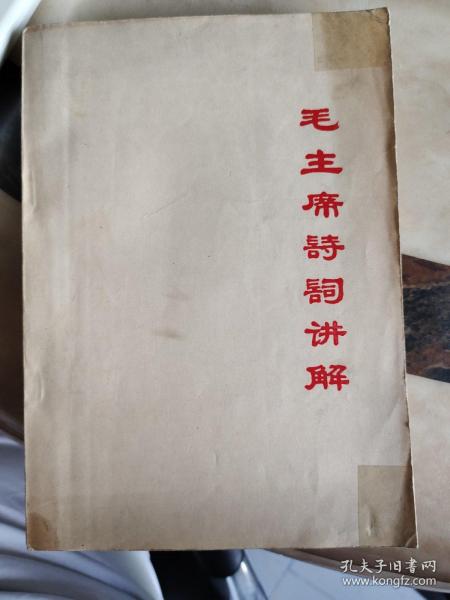 毛主席詩詞讲解
孔夫子旧书网
www.kongfz.com